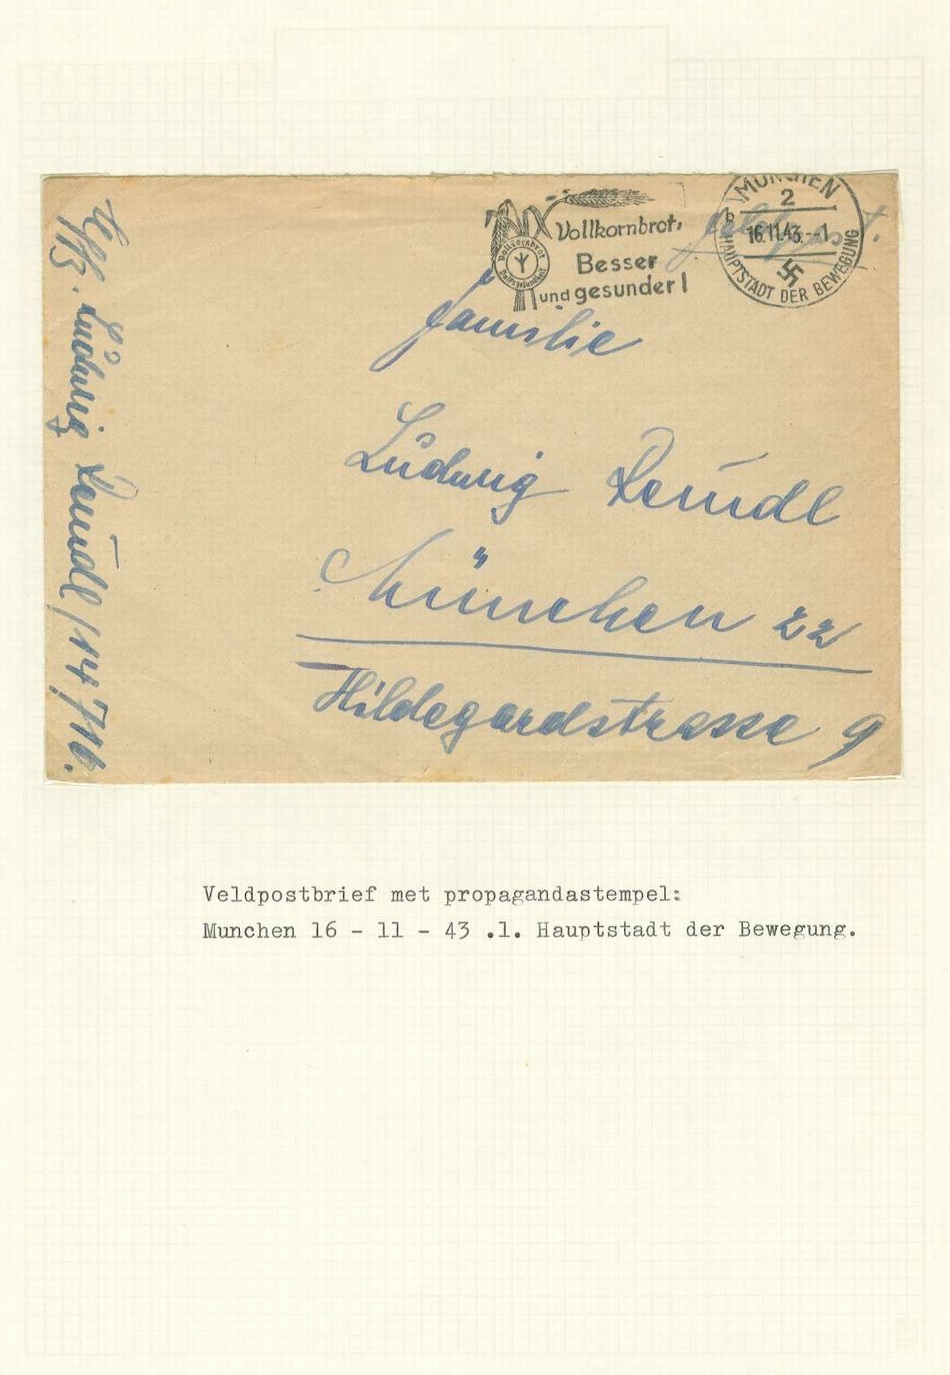 Vollkornbrot,
Besser
und gesunder!
Vollkornbrot
MÜNCHEN
2
b
16.11.43.--1
HAUPTSTADT DER BEWEGUNG
Feldpost.
Familie
Ludwig
München 22
Hildegardstrasse 9
Uffz. Ludwig
Veldpostbrief met propagandastempel:
Munchen 16 - 11 - 43 .1. Hauptstadt der Bewegung.